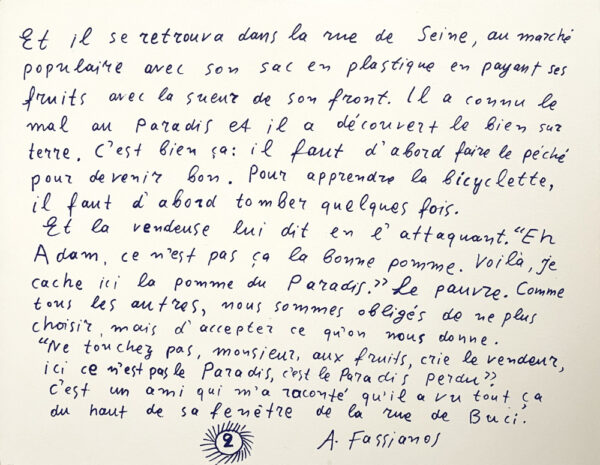 Et il se retrouva dans la rue de Seine, au marché
populaire avec son sac en plastique en payant ses
fruits avec la sueur de son front. Il a connu le
mal au Paradis et il a découvert le bien sur
terre. C'est bien ça: il faut d'abord faire le péché
pour devenir bon. Pour apprendre la bicyclette,
il faut d'abord tomber quelques fois.
Et la vendeuse lui dit en l'attaquant. "Eh
Adam, ce n'est pas ça la bonne pomme. Voilà, je
cache ici la pomme du Paradis." Le pauvre. Comme
tous les autres, nous sommes obligés de ne plus
choisir, mais d'accepter ce qu'on nous donne.
"Ne touchez pas, monsieur, aux fruits, crie le vendeur,
ici ce n'est pas le Paradis, c'est le Paradis perdu".
C'est un ami qui m'a raconté qu'il a vu tout ça
du haut de sa fenêtre de la rue de Buci.
2 A. Fassianos